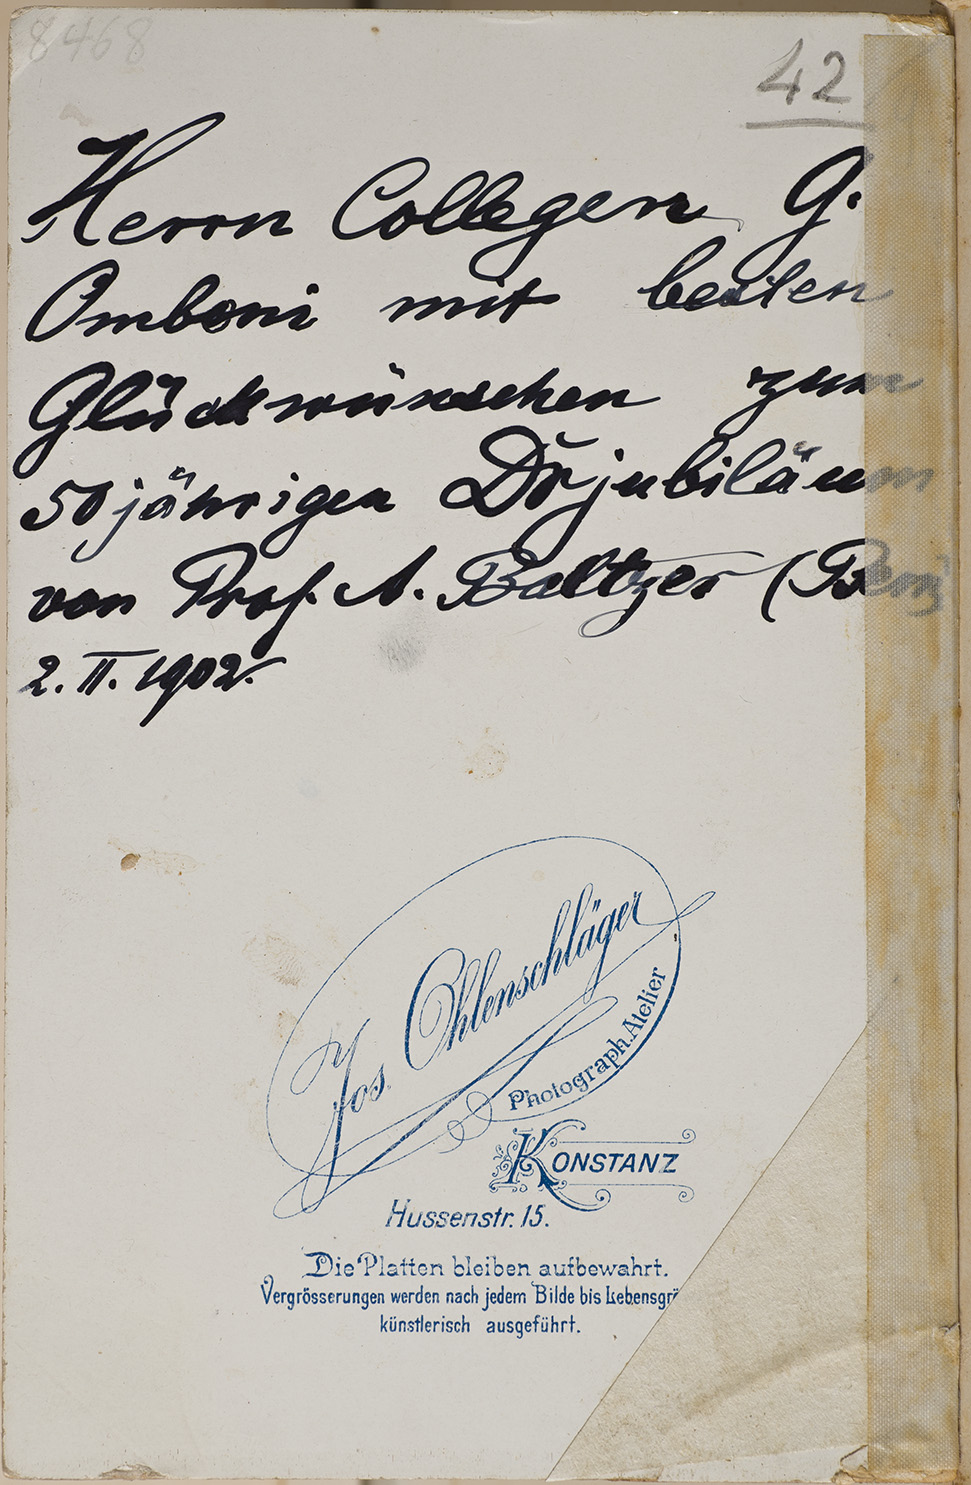 8468
42
Herrn Collegen G.
Omboni mit besten
Glückwünschen zum
50jährigen Drjubiläum
von Prof. A. Baltzer (Bern)
2. II. 1902.
Jos. Ohlenschläger
Photograph. Atelier
KONSTANZ
Hussenstr. 15.
Die Platten bleiben aufbewahrt.
Vergrösserungen werden nach jedem Bilde bis Lebensgrö
künstlerisch ausgeführt.